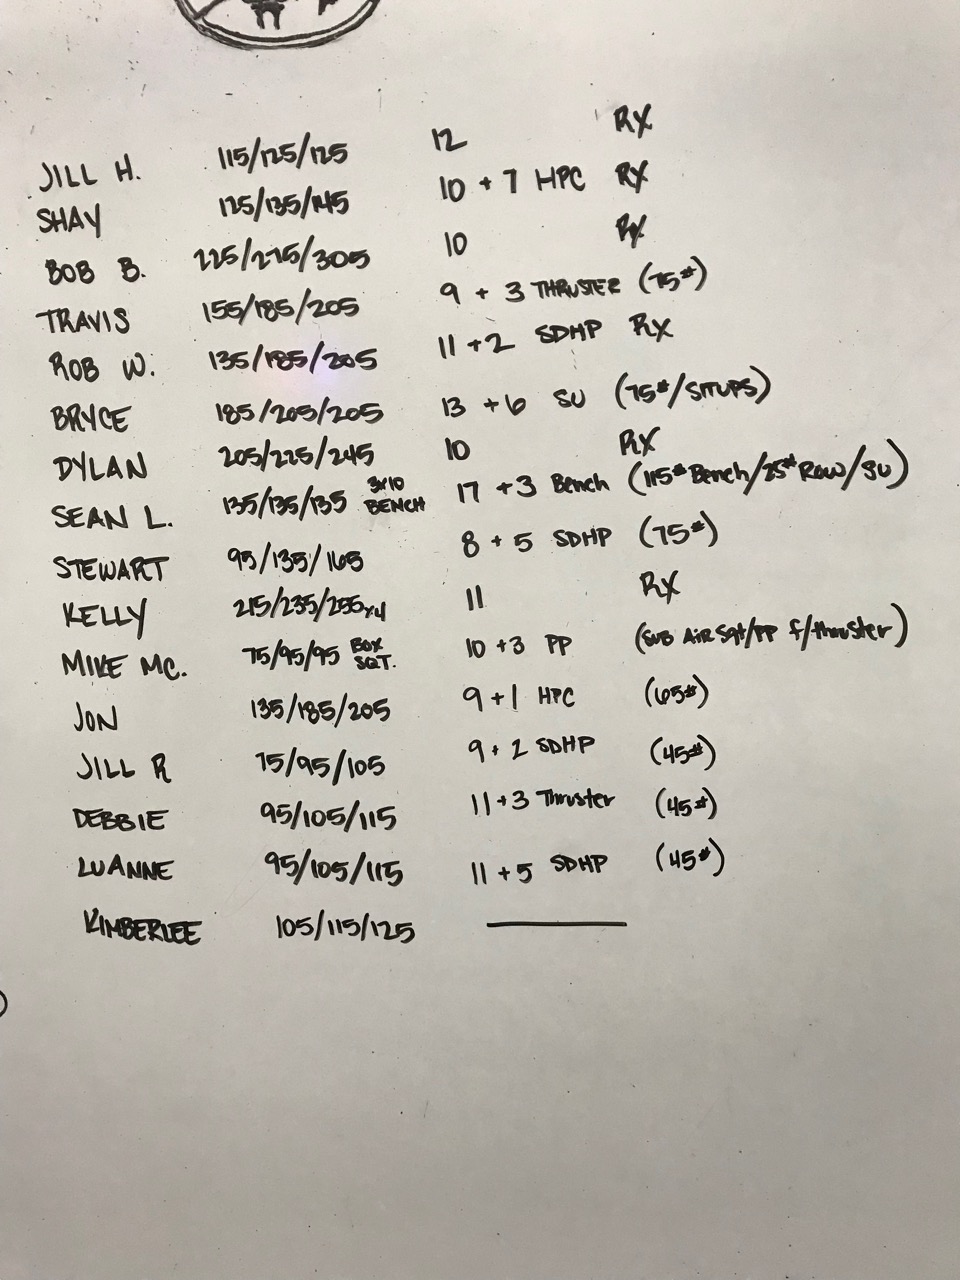 JILL H. 115/125/125 12 RX
SHAY 125/135/145 10 + 7 HPC RX
BOB B. 225/275/305 10 RX
TRAVIS 155/185/205 9 + 3 THRUSTER (75#)
ROB W. 135/185/205 11 + 2 SDHP RX
BRYCE 185/205/205 13 + 6 SU (75#/SITUPS)
DYLAN 205/225/245 10 RX
SEAN L. 135/135/135 3x10 BENCH 17 + 3 Bench (115# Bench/25# Row/SU)
STEWART 95/135/165 8 + 5 SDHP (75#)
KELLY 215/235/255x4 11 RX
MIKE MC. 75/95/95 BOX SQT. 10 + 3 PP (SUB AIR Sqt/PP f/thruster)
JON 135/185/205 9 + 1 HPC (65#)
JILL R 75/95/105 9 + 2 SDHP (45#)
DEBBIE 95/105/115 11 + 3 Thruster (45#)
LUANNE 95/105/115 11 + 5 SDHP (45#)
KIMBERLEE 105/115/125